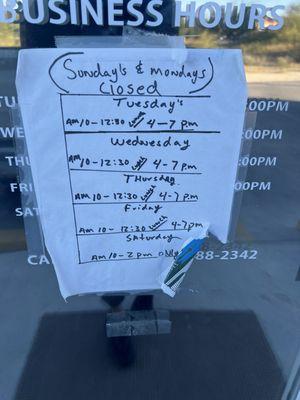 BUSINESS HOURS
(Sunday's & mondays)
Closed
Tuesday's
Am 10-12:30 Lunch 4-7 pm
Wednesday
Am 10-12:30 Lunch 4-7 pm
Thursday
Am 10-12:30 Lunch 4-7 pm
Friday
Am 10-12:30 Lunch 4-7 pm
Saturday
Am 10-2 pm only
TU :00PM
WE
THU :00PM
FRI 0PM
SAT
CA 88-2342